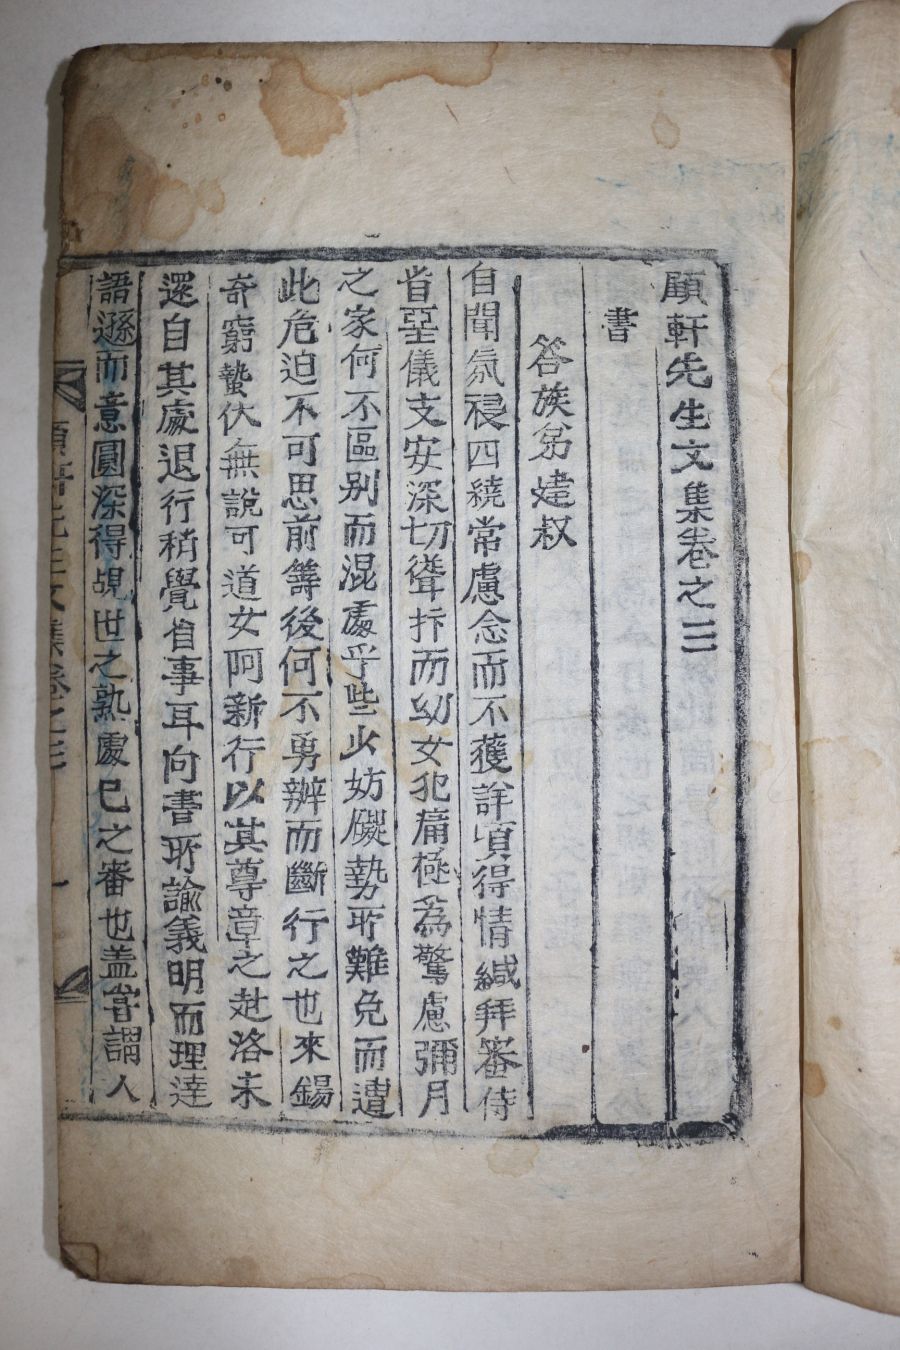 顧軒先生文集卷之三
書
答族弟建叔
自聞氛祲四繞常慮念而不獲詳頃得情緘拜審侍
省堊儀支安深切聳抃而幼女犯痛極爲驚慮彌月
之家何不區别而混處乎些少妨礙勢所難免而遭
此危迫不可思前筭後何不勇辦而斷行之也來錫
奇窮蟄伏無說可道女阿新行以其尊章之赴洛未
還自其處退行稍覺省事耳向書所諭義明而理達
語遜而意圓深得覘世之熟處已之審也盖嘗謂人
顧軒先生文集卷之三 一